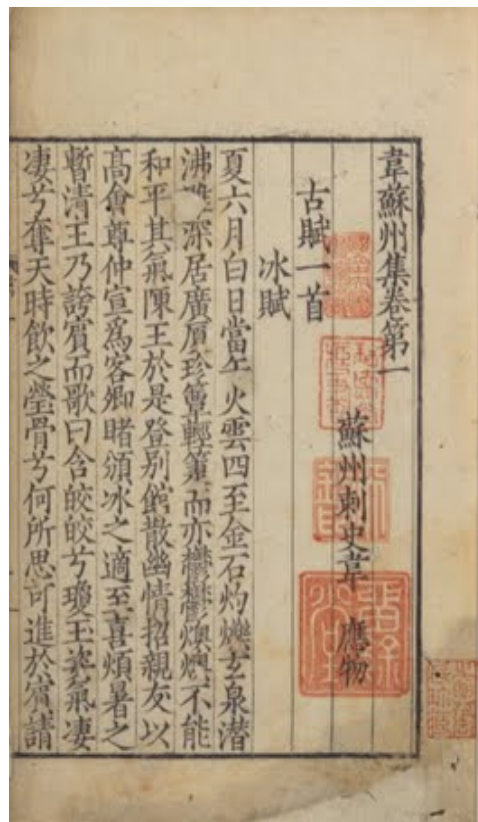 韋蘇州集卷第一
蘇州刺史韋 應物
古賦一首
冰賦
夏六月白日當午火雲四至金石灼爍玄泉潛
沸深居廣厦珍簟輕箑而亦鬱鬱燠燠不能
和平其氣陳王於是登别館散幽情招親友以
高會尊仲宣爲客卿睹頒冰之適至喜煩暑之
暫清王乃誇賓而歌曰含皎皎兮瓊玉姿氣凄
凄兮奪天時飲之瑩骨兮何所思可進於賓請